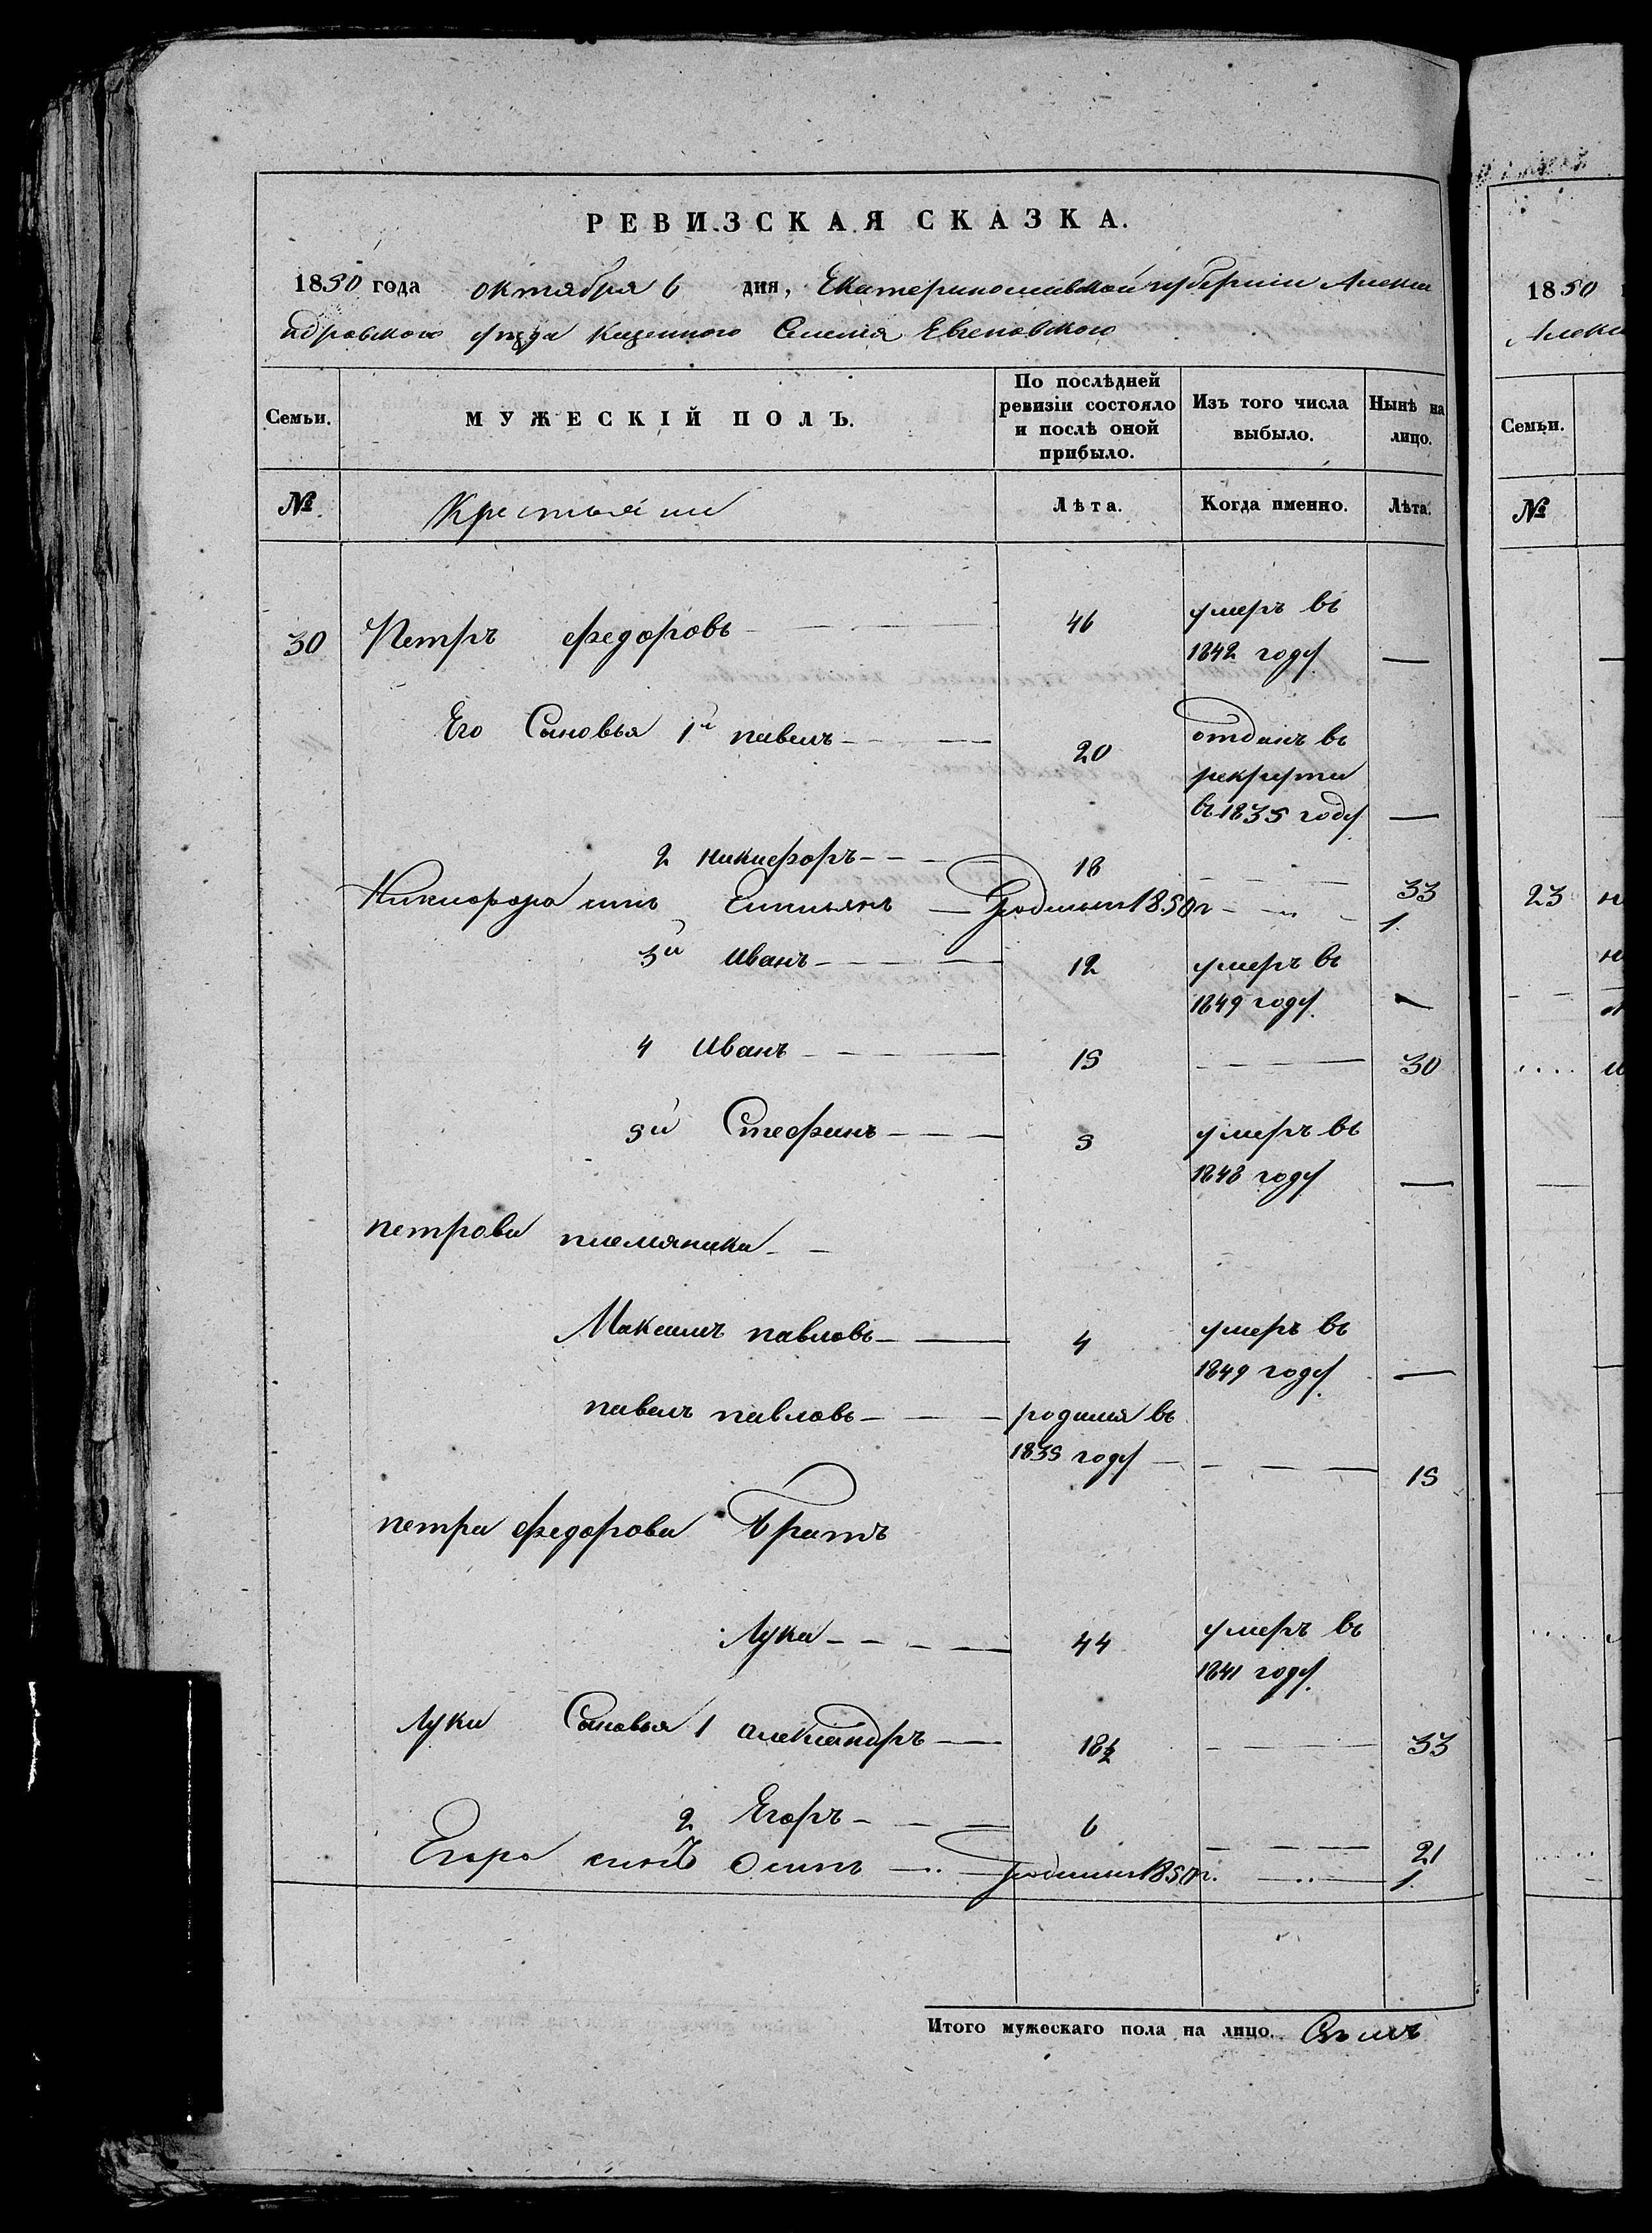 РЕВИЗСКАЯ СКАЗКА.
1850 года октября 6 дня, Екатеринославской губернии Алекса
ндровского уезда Казенного Селения Евгеновского
Семьи. МУЖЕСКІЙ ПОЛЪ. По послѣдней ревизіи состояло и послѣ оной прибыло. Изъ того числа выбыло. Нынѣ на лицо.
№ Крестьяни Лѣта. Когда именно. Лѣта.
30 Петръ федоровъ 46 умеръ въ
1842 году —
Его Сыновья 1й павелъ 20 отданъ въ
рекруты
въ 1835 году —
2 никифоръ 18 — 33
Никифора сынъ Емельянъ родился 1850 г 1
3й Иванъ 12 умеръ въ
1849 году —
4 Иванъ 15 — 30
5й Стефанъ 5 умеръ въ
1848 году —
петрови племяники
Максимъ павловъ 4 умеръ въ
1849 году —
павелъ павловъ родился въ
1835 году — 15
петра федорова братъ
Лука 44 умеръ въ
1841 году
Луки Сыновья 1 александръ 18½ — 33
2 Егоръ 6 — 21
Егора сынъ Осипъ родился 1850 г. 1
Итого мужескаго пола на лицо.
1850
Алекс
Семьи.
№
23